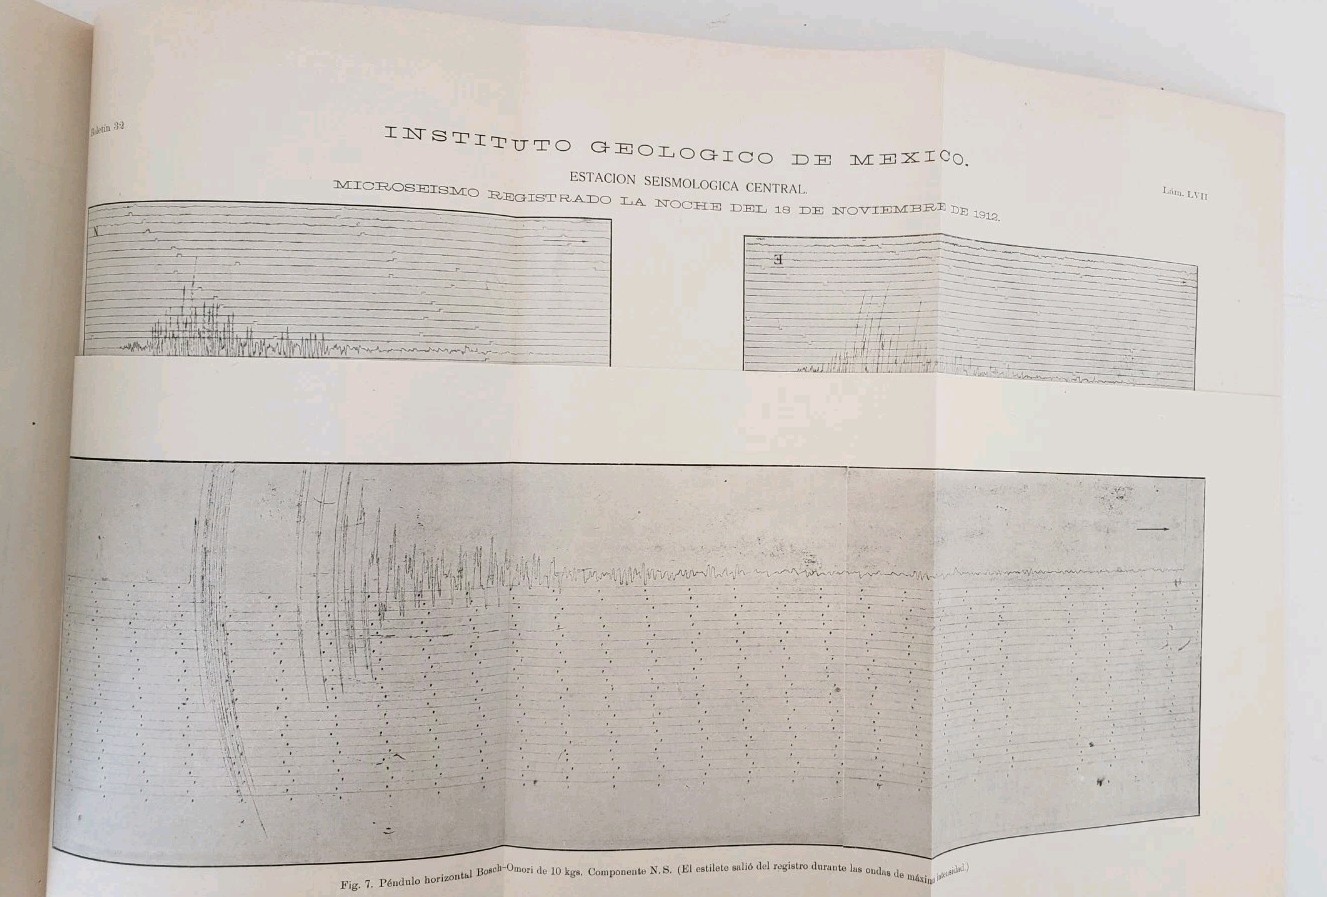 Boletín 32
INSTITUTO GEOLOGICO DE MEXICO.
ESTACION SEISMOLOGICA CENTRAL.
Lám. LVII
MICROSEISMO REGISTRADO LA NOCHE DEL 18 DE NOVIEMBRE DE 1912.
N
E
Fig. 7. Péndulo horizontal Bosch-Omori de 10 kgs. Componente N. S. (El estilete salió del registro durante las ondas de máxima intensidad.)